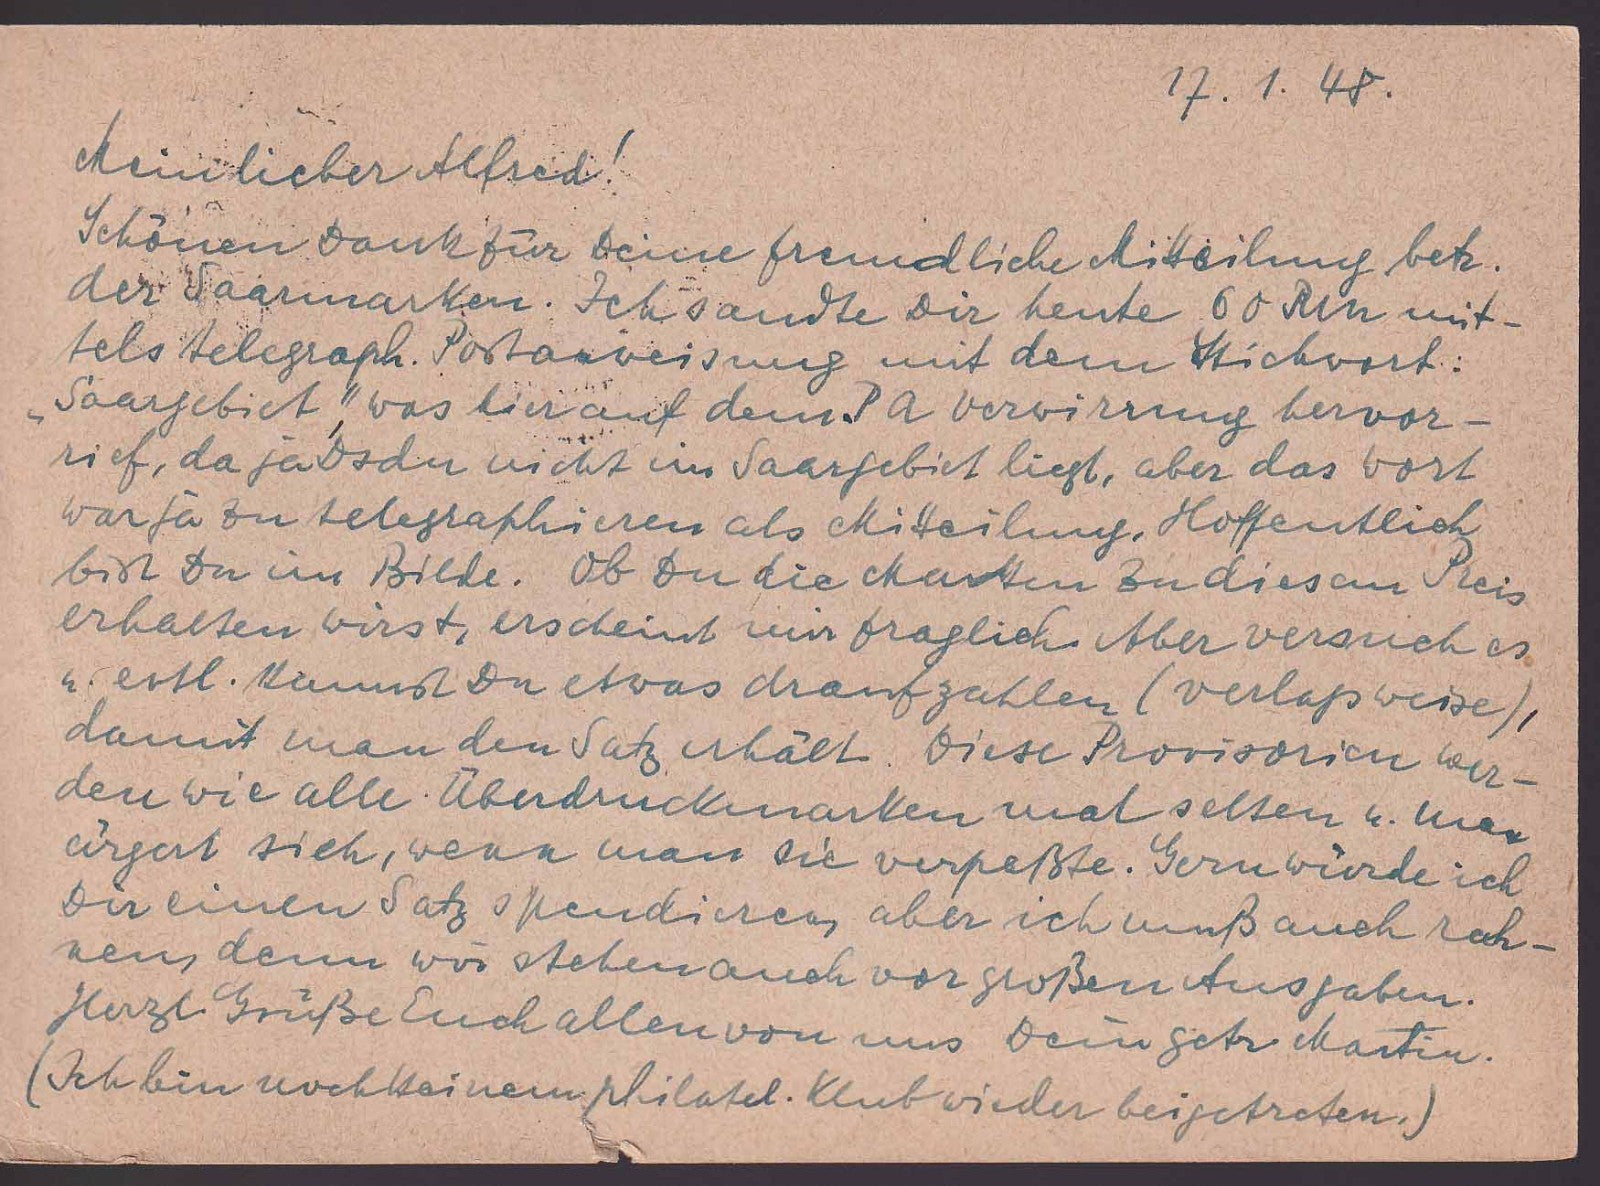 17. 1. 48.
Mein lieber Alfred!
Schönen Dank für Deine freundliche Mitteilung betr.
der Saarmarken. Ich sandte Dir heute 60 RM mit-
tels telegraph. Postanweisung mit dem Stichwort:
„Saargebiet", was hier auf dem PA Verwirrung hervor-
rief, da ja Dsdn nicht im Saargebiet liegt, aber das Wort
war ja zu telegraphieren als Mitteilung. Hoffentlich
bist Du im Bilde. Ob Du die Marken zu diesem Preis
erhalten wirst, erscheint mir fraglich. Aber versuch es
u. evtl. kannst Du etwas draufzahlen (verlagsweise),
damit man den Satz erhält. Diese Provisorien wer-
den wie alle Überdruckmarken mal selten u. man
ärgert sich, wenn man sie verpaßte. Gern würde ich
Dir einen Satz spendieren, aber ich muß auch rech-
nen, denn wir stehen auch vor großen Ausgaben.
Herzl. Grüße Euch allen von uns Dein getr. Martin.
(Ich bin noch keinem philatel. Klub wieder beigetreten.)